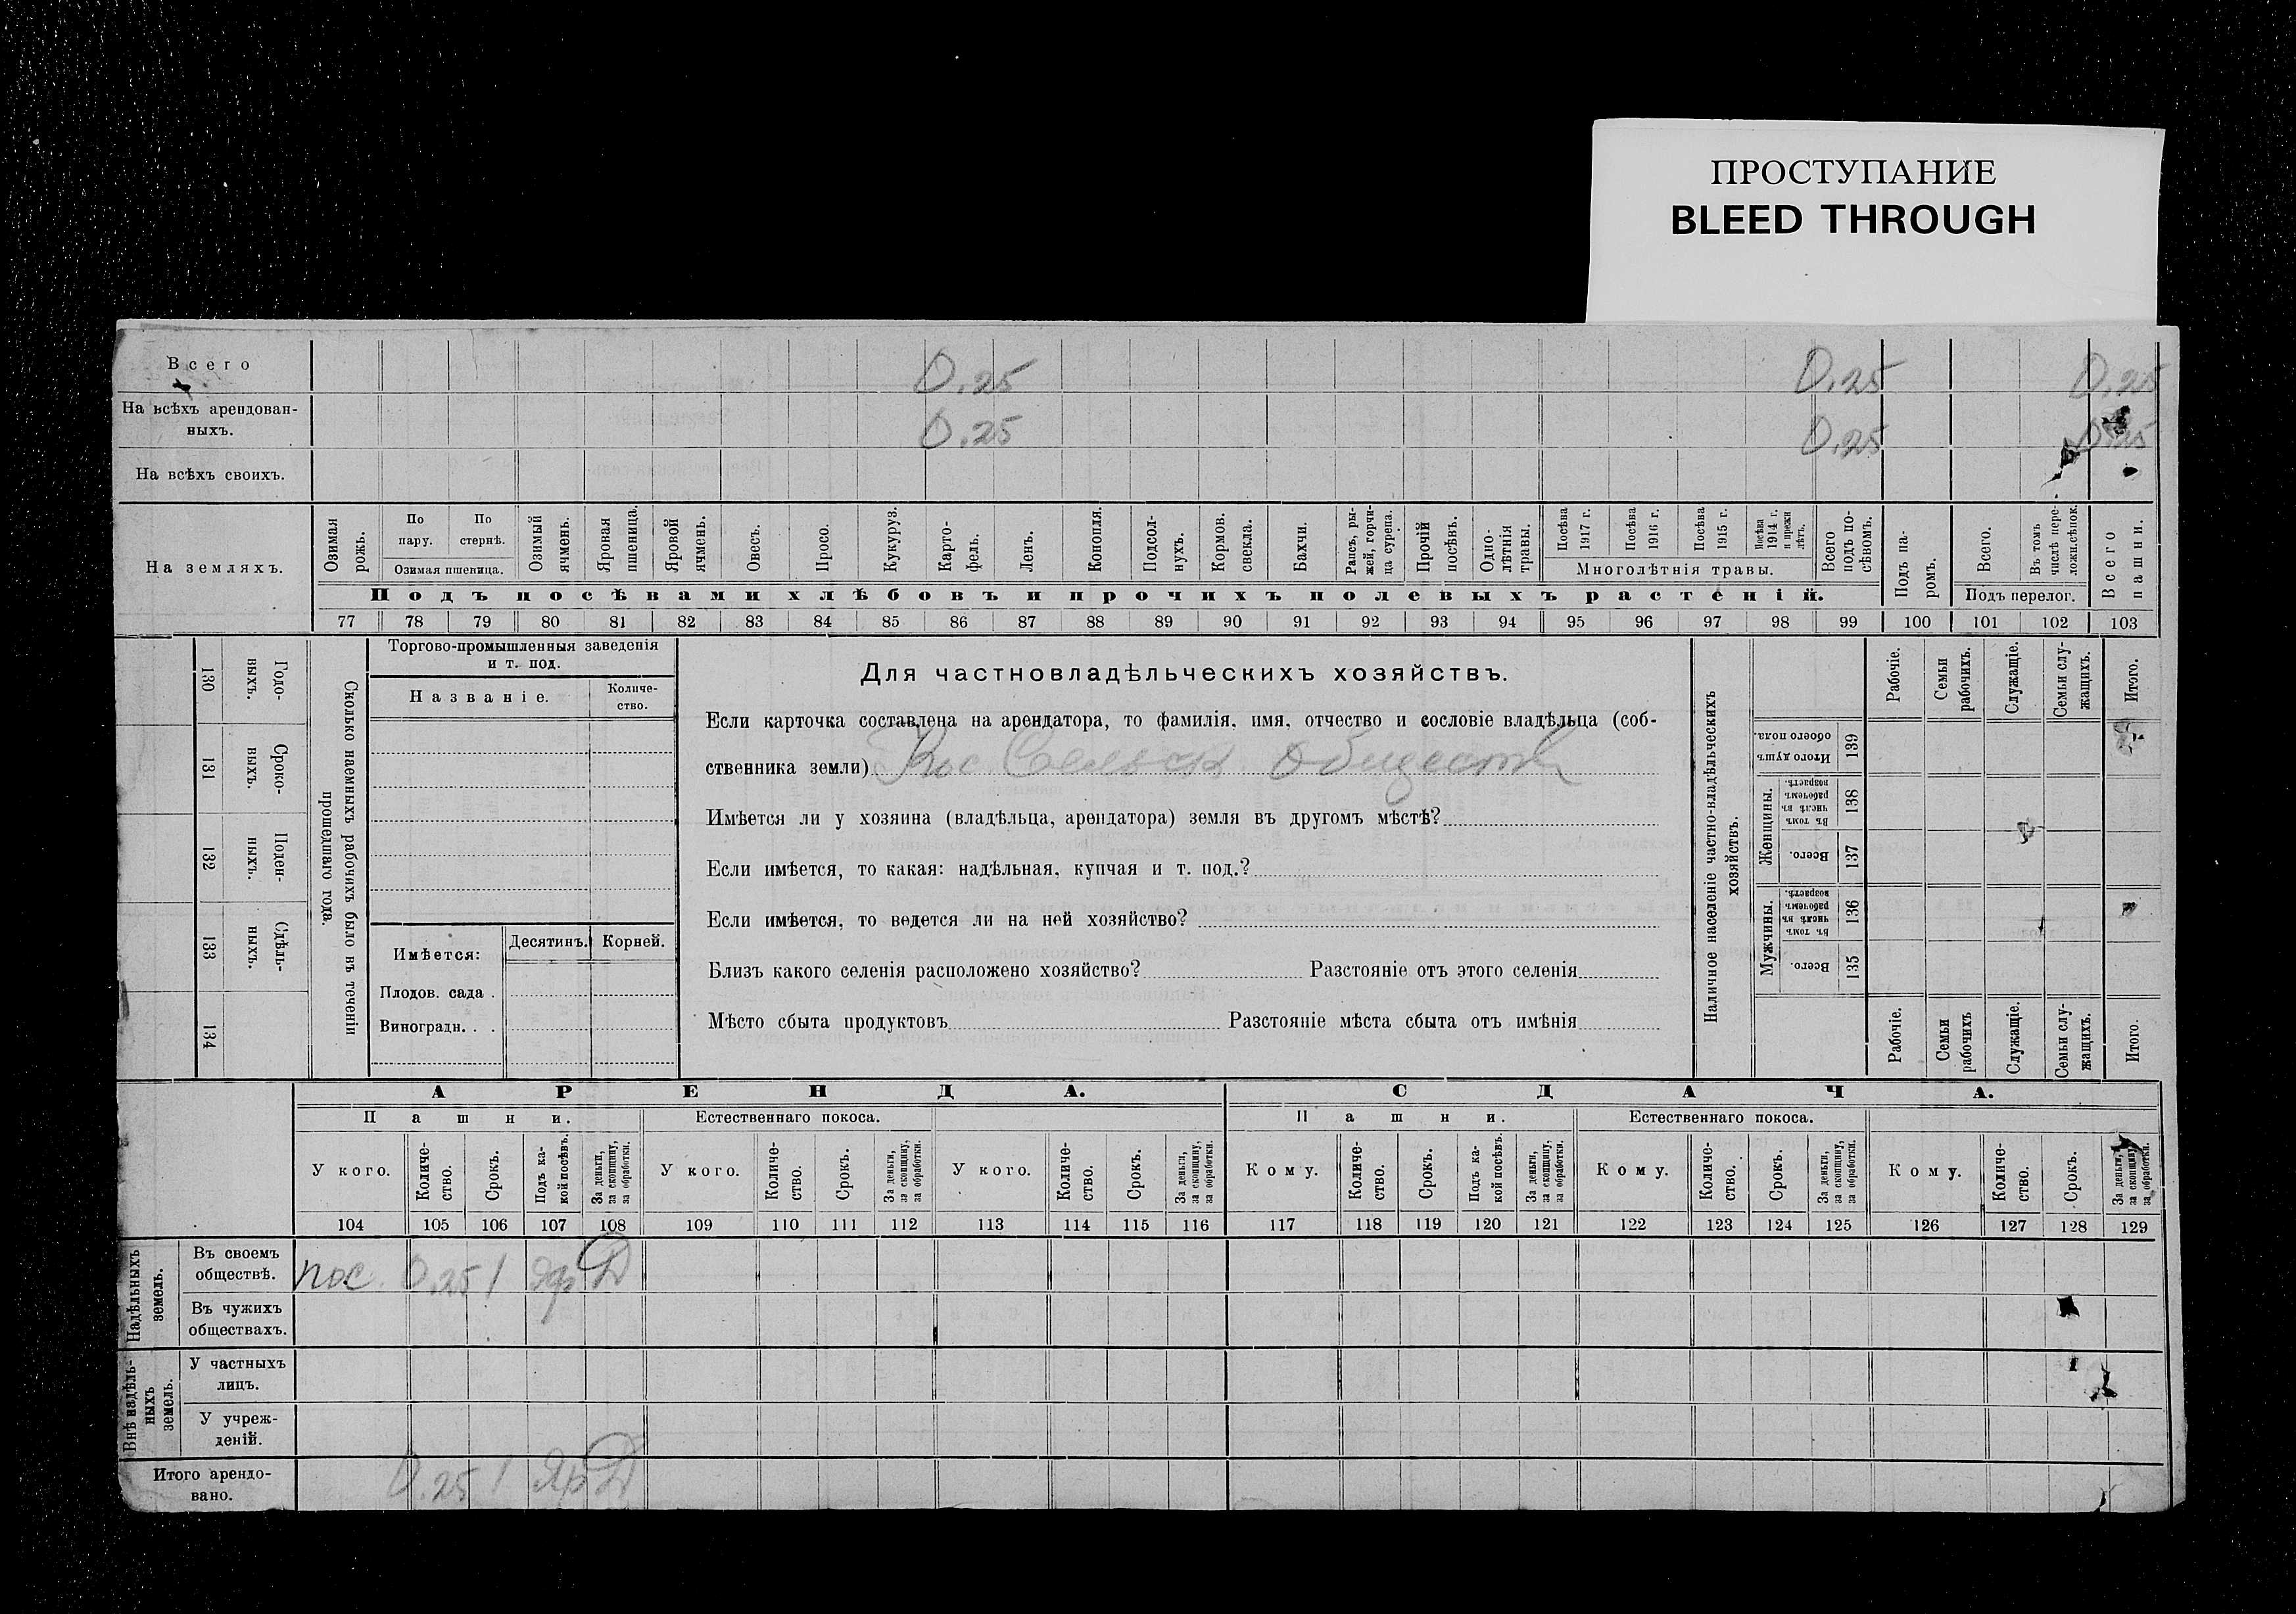 ПРОСТУПАНИЕ
BLEED THROUGH
Всего 0.25 0.25 0.25
На всѣхъ арендован-
ныхъ. 0.25 0.25 0.25
На всѣхъ своихъ.
На земляхъ.
Озимая рожь.
По пару.
По стернѣ.
Озимая пшеница.
Озимый ячмень.
Яровая пшеница.
Яровой ячмень.
Овесъ.
Просо.
Кукуруз.
Карто-
фель.
Ленъ.
Конопля.
Подсол-
нухъ.
Кормов. свекла.
Бахчи.
Рапсъ, ры-
жей, горчи-
ца сурепа.
Прочій посѣвъ.
Одно-
лѣтнія травы.
Посѣва 1917 г.
Посѣва 1916 г.
Посѣва 1915 г.
Посѣва 1914 г. и прежн лѣтъ.
Многолѣтнія травы.
Всего подъ по-
сѣвомъ.
Подъ па-
ромъ.
Всего.
Въ томъ числѣ пере-
ложн.сѣнок.
Подъ перелог.
Всего пашни.
Подъ посѣвами хлѣбовъ и прочихъ полевыхъ растеній.
77 78 79 80 81 82 83 84 85 86 87 88 89 90 91 92 93 94 95 96 97 98 99 100 101 102 103
130 Годо-
выхъ.
131 Сроко-
ныхъ.
132 Поден-
ныхъ.
133 Сдѣль-
ныхъ.
134
Сколько наемныхъ рабочихъ было въ теченіи
прошедшаго года.
Торгово-промышленныя заведенія
и т. под.
Названіе.
Количе-
ство.
Имѣется:
Десятинъ.
Корней.
Плодов. сада .
Виноградн. . .
Для частновладѣльческихъ хозяйствъ.
Если карточка составлена на арендатора, то фамилія, имя, отчество и сословіе владѣльца (соб-
ственника земли) Сельск Обществ
Имѣется ли у хозяина (владѣльца, арендатора) земля въ другомъ мѣстѣ?
Если имѣется, то какая: надѣльная, купчая и т. под.?
Если имѣется, то ведется ли на ней хозяйство?
Близъ какого селенія расположено хозяйство? Разстояніе отъ этого селенія
Мѣсто сбыта продуктовъ Разстояніе мѣста сбыта отъ имѣнія
Наличное населеніе частно-владѣльческихъ
хозяйствъ.
Рабочіе.
Семьи рабочихъ.
Служащіе.
Семьи слу-
жащихъ.
Итого.
Итого душъ обоего пола. 139
Женщины.
Въ томъ числѣ въ рабочемъ возрастѣ. 138
Всего. 137
Мужчины.
Въ томъ числѣ въ рабочемъ возрастѣ. 136
Всего. 135
Рабочіе.
Семьи рабочихъ
Служащіе.
Семьи слу-
жащихъ.
Итого.
АРЕНДА. СДАЧА.
Пашни. Естественнаго покоса. Пашни. Естественнаго покоса.
У кого.
Количе-
ство.
Срокъ.
Подъ ка-
кой посѣвъ.
За деньги, за скопщину, за обработки.
У кого.
Количе-
ство.
Срокъ.
За деньги, за скопщину, за обработки.
У кого.
Количе-
ство.
Срокъ.
За деньги, за скопщину, за обработки.
Кому.
Количе-
ство.
Срокъ.
Подъ ка-
кой посѣвъ.
За деньги, за скопщину, за обработки.
Кому.
Количе-
ство.
Срокъ.
За деньги, за скопщину, за обработки.
Кому.
Количе-
ство.
Срокъ.
За деньги, за скопщину, за обработки.
104 105 106 107 108 109 110 111 112 113 114 115 116 117 118 119 120 121 122 123 124 125 126 127 128 129
Надѣльныхъ земель.
Въ своемъ
обществѣ. пос. 0.25 1 яр Д
Въ чужихъ
обществахъ.
Внѣ надѣль-
ныхъ земель.
У частныхъ
лицъ.
У учреж-
деній.
Итого арендо-
вано. 0.25 1 яр Д